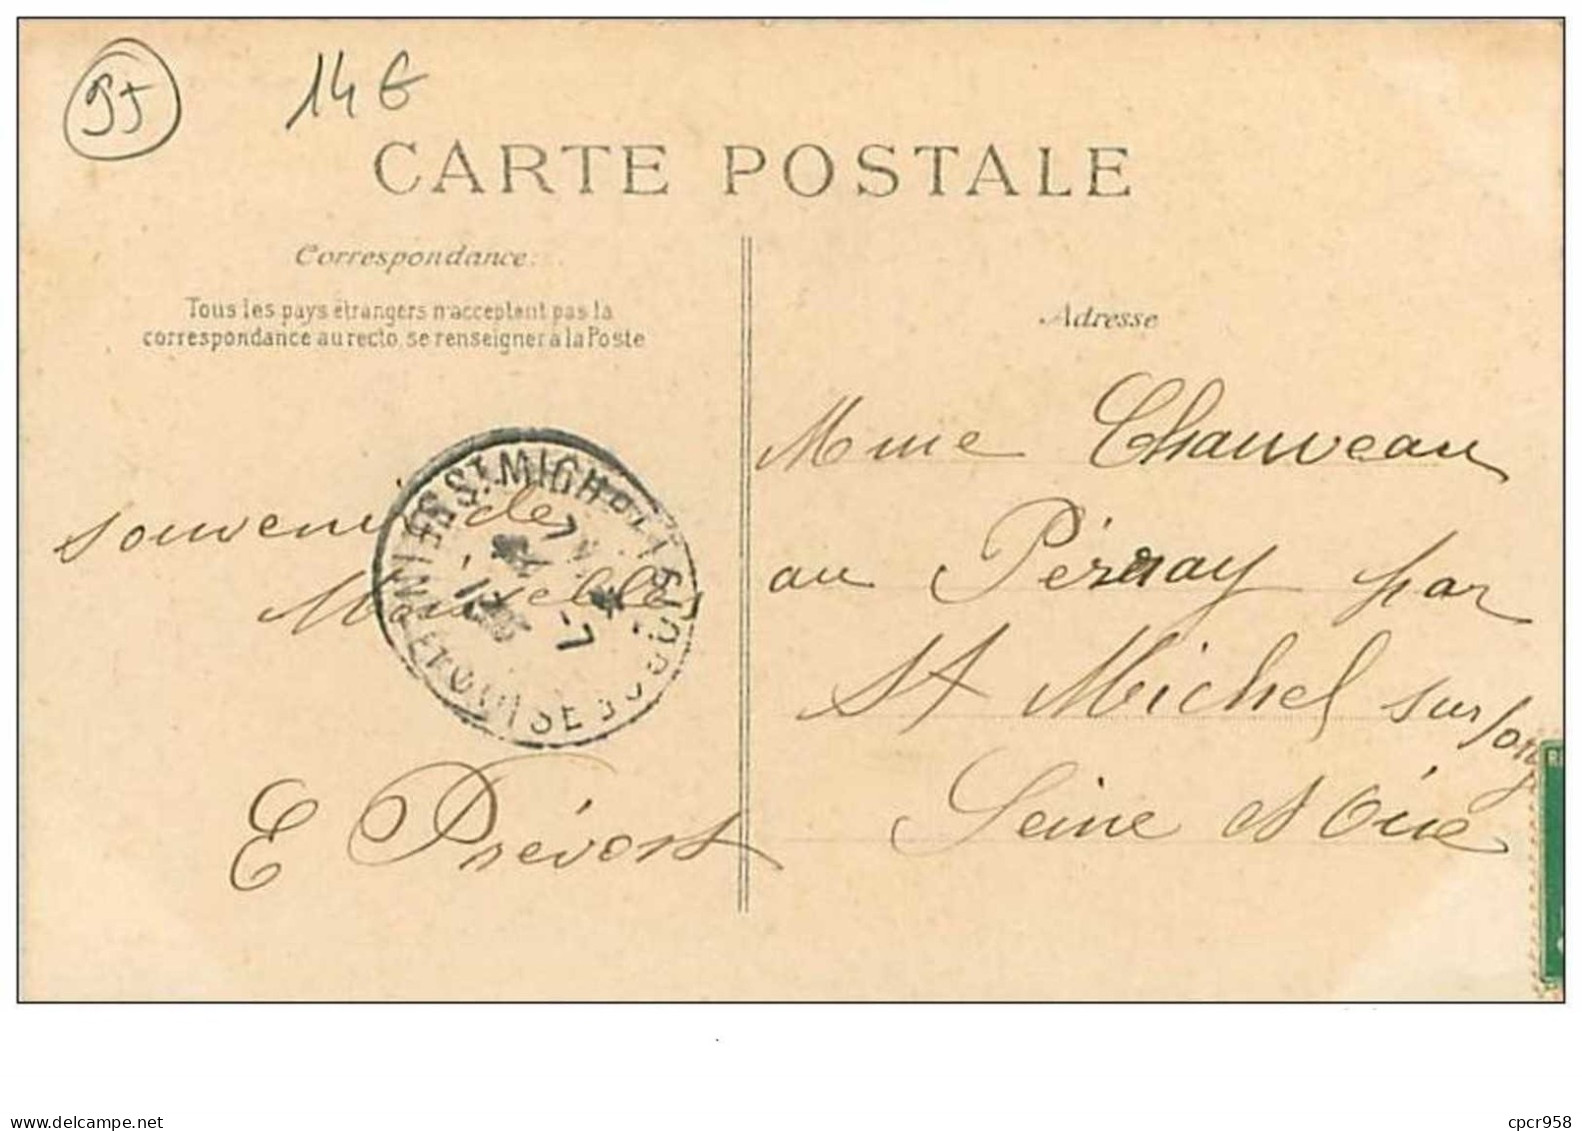 95
14 €
CARTE POSTALE
Correspondance:
Tous les pays étrangers n'acceptent pas la
correspondance au recto, se renseigner à la Poste
Adresse
souvenir de
E Prévost
ST MICHEL S
SEINE ET OISE
7
Mme Chauveau
au Pérray par
St Michel sur
Seine et Oise
www.delcampe.net
cpcr958